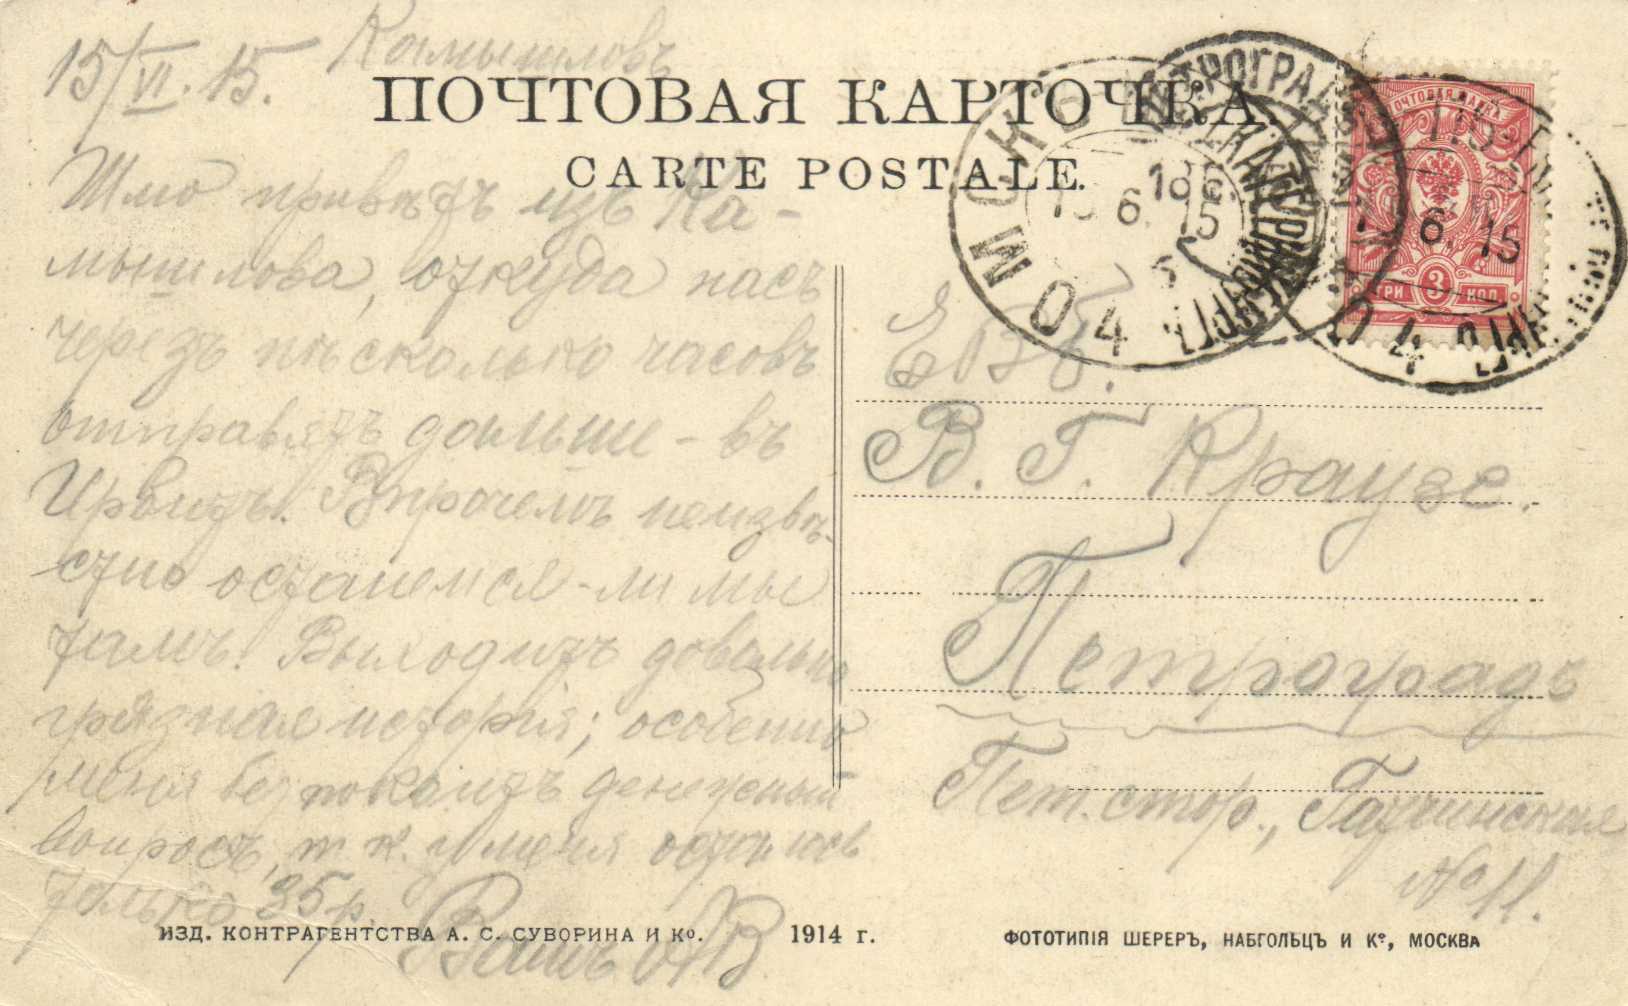 15/VI.15. Камышловъ
ПОЧТОВАЯ КАРТОЧКА.
CARTE POSTALE.
Шлю привѣтъ изъ Ка-
мышлова, откуда насъ
черезъ нѣсколько часовъ
отправятъ дальше - въ
Ирбитъ. Впрочемъ неизвѣ-
стно останемся-ли мы
тамъ. Выходитъ довольно
грязная исторія; особенно
меня безпокоитъ денежный
вопросъ, т. к. у меня осталось
только 35 р.
Вашъ АВ
ЕВБ.
В. Г. Краузе.
Петроградъ
Пет. стор., Гатчинская
№ 11.
ОМСКЪ
ПЕТРОГРАДЪ
6 15
6. 15
ПОЧТОВАЯ МАРКА
ТРИ 3 КОП
ИЗД. КОНТРАГЕНТСТВА А. С. СУВОРИНА И Ко. 1914 г.
ФОТОТИПІЯ ШЕРЕРЪ, НАБГОЛЬЦЪ И Ко, МОСКВА